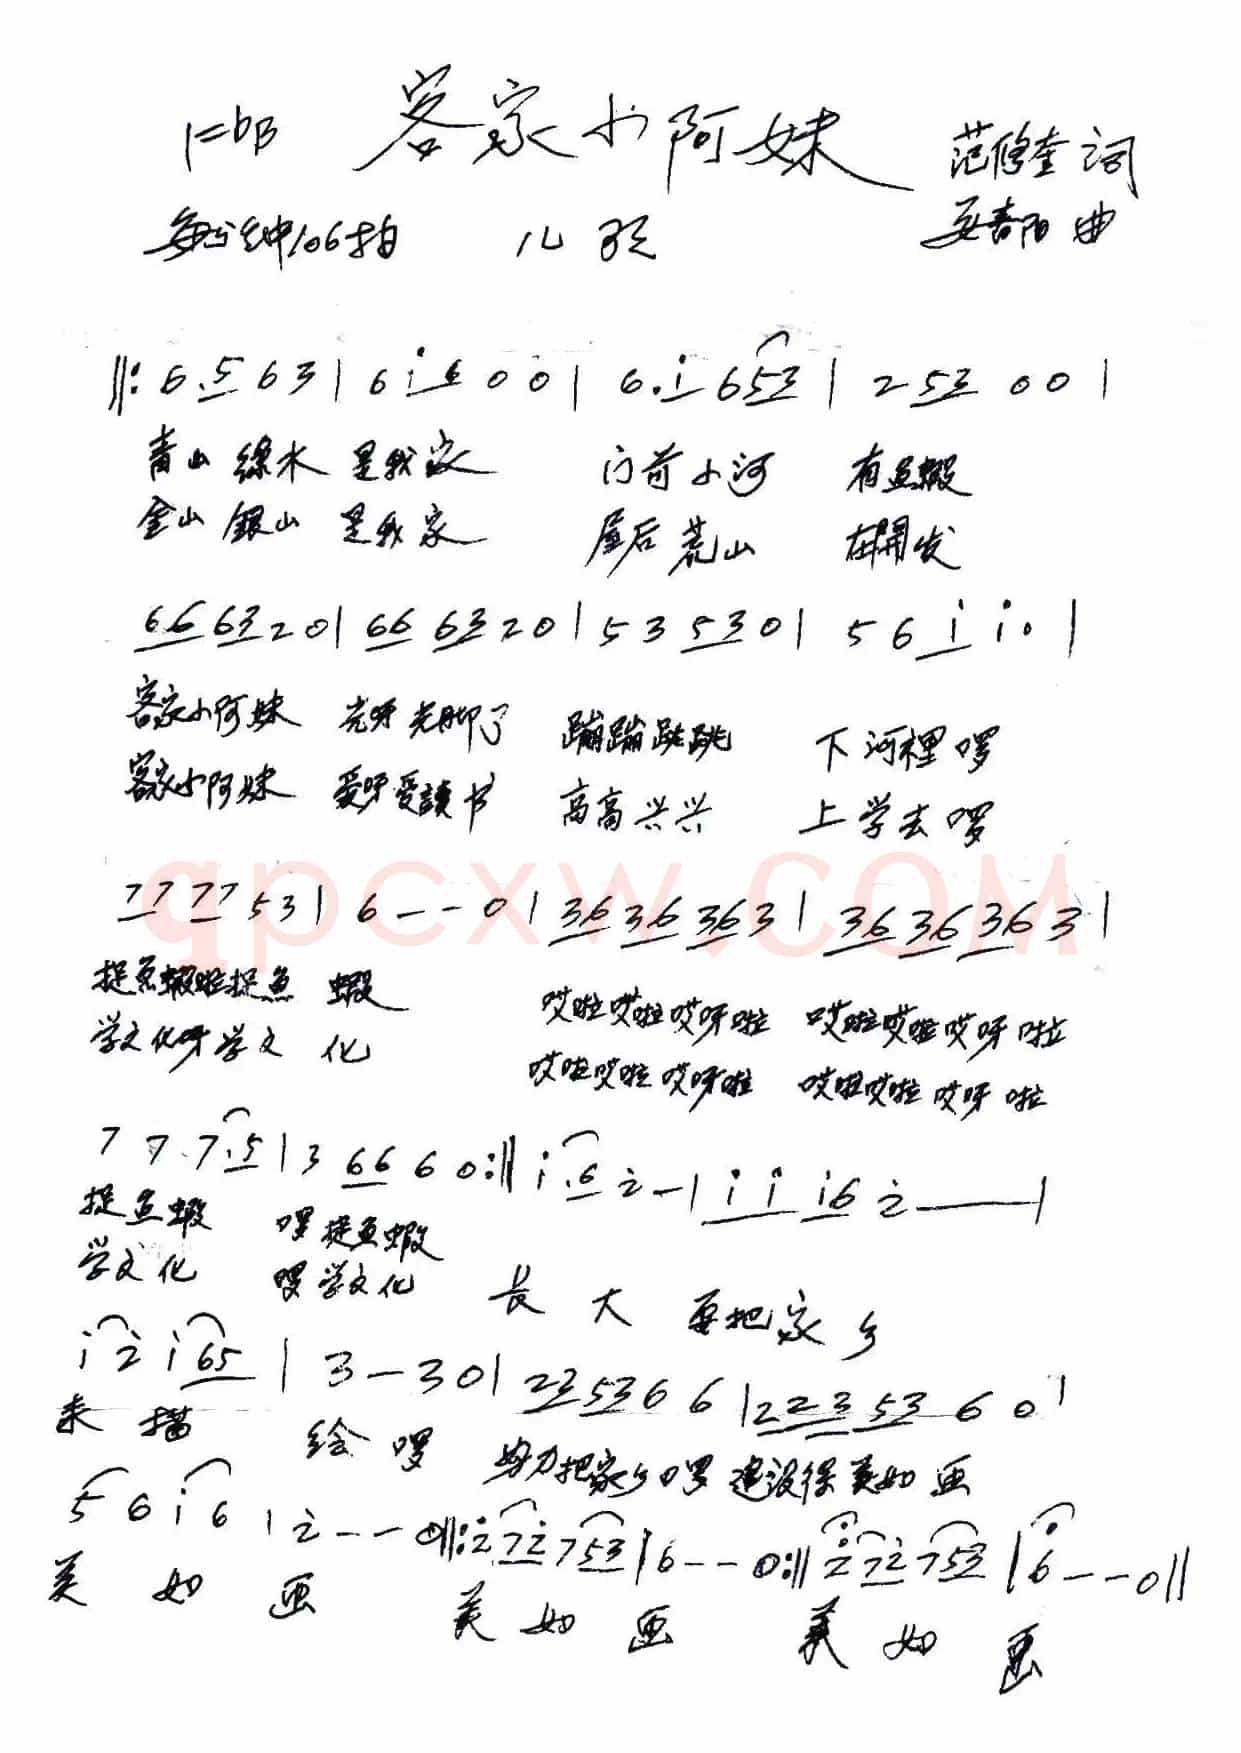 1=bB 客家小阿妹 范修奎 词
每分钟106拍 儿歌 春阳 曲
‖: 6.5 6 3 | 6 i 6 0 0 | 6.i 6 53 | 2 53 0 0 |
青山 綠水 是我家 门前小河 有鱼蝦
金山 銀山 是我家 屋后荒山 在開发
66 63 2 0 | 66 63 2 0 | 5 3 53 0 | 5 6 i i. |
客家小阿妹 光呀光脚了 蹦蹦跳跳 下河裡啰
客家小阿妹 爱呀爱讀书 高高兴兴 上学去啰
77 77 5 3 | 6 - - 0 | 36 36 36 3 | 36 36 36 3 |
qpcxw.COM
捉鱼蝦啦捉鱼 蝦 哎啦哎啦哎呀啦 哎啦哎啦哎呀啦
学文化呀学文 化 哎啦哎啦哎呀啦 哎啦哎啦哎呀啦
7 7 7.5 | 3 66 6 0 :‖ i.6 2 - | i i i6 2 — |
捉鱼蝦 啰捉鱼蝦
学文化 啰学文化 長 大 要把家 乡
i 2 i 65 | 3 - 3 0 | 23 53 6 6 | 223 53 6 0 |
来 描 绘 啰 努力把家乡啰 建设得美如 画
5 6 i 6 | 2 - - 0 ‖: 2 72 7 53 | 6 - - 0 :‖ 2 72 7 53 | 6 - - 0 ‖
美 如 画 美 如 画 美 如 画